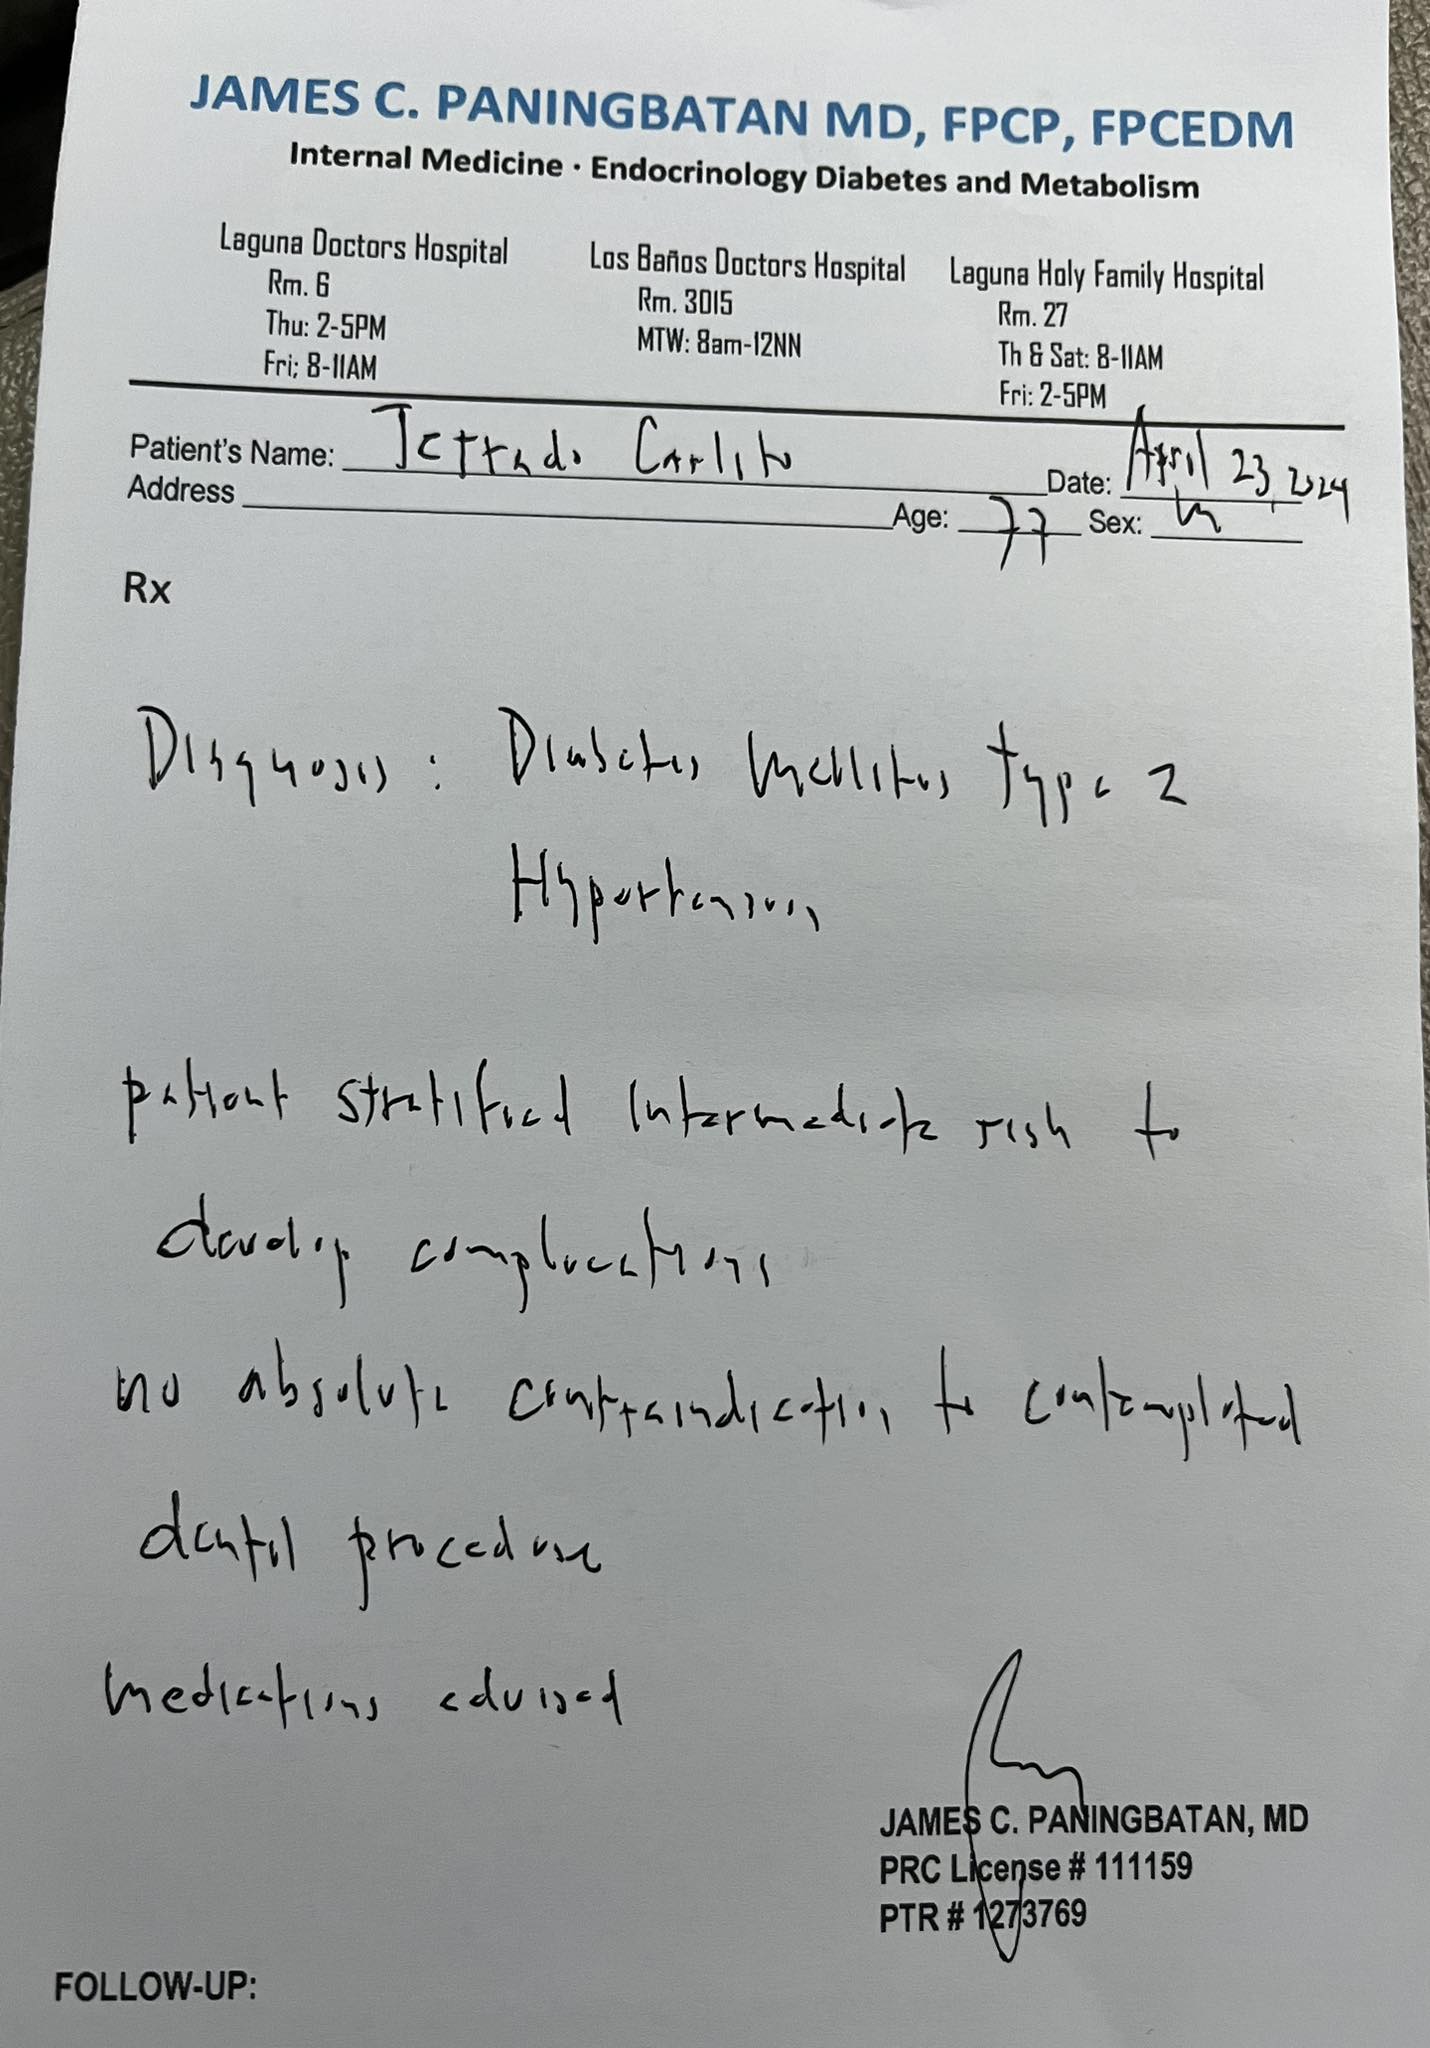 JAMES C. PANINGBATAN MD, FPCP, FPCEDM
Internal Medicine · Endocrinology Diabetes and Metabolism
Laguna Doctors Hospital
Rm. 6
Thu: 2-5PM
Fri; 8-11AM
Los Baños Doctors Hospital
Rm. 3015
MTW: 8am-12NN
Laguna Holy Family Hospital
Rm. 27
Th & Sat: 8-11AM
Fri: 2-5PM
Patient's Name: Carlito
Date: April 23, 2024
Address
Age: 77 Sex: M
Rx
Diagnosis: Diabetes Mellitus type 2
Hypertension
patient stratified intermediate risk to
develop complications
no absolute contraindication to contemplated
dental procedure
medications advised
JAMES C. PANINGBATAN, MD
PRC License # 111159
PTR # 1273769
FOLLOW-UP: